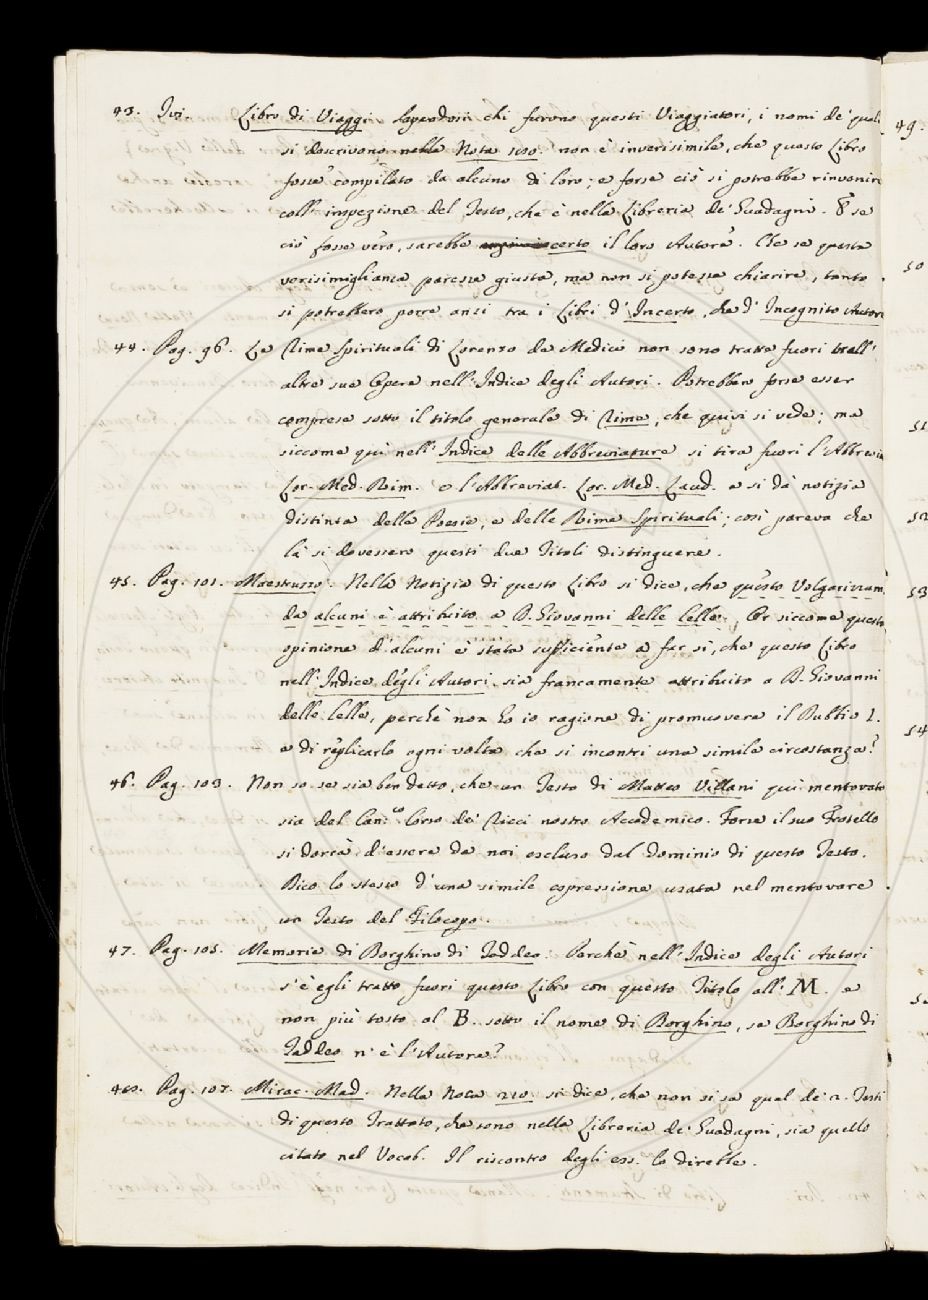 43. Ivi. Libro di Viaggi. Sapendosi chi furono questi Viaggiatori, i nomi de' quali
si descrivono nella Nota 180. non è inverisimile, che questo Libro
fosse compilato da alcuno di loro; e forse ciò si potrebbe rinvenire
coll' inspezione del Testo, che è nella Libreria de' Guadagni. E se
ciò fosse vero, sarebbe certo il loro Autore. Che se questa
verisimiglianza paresse giusta, ma non si potesse chiarire, tanto
si potrebbero porre anzi tra i Libri d' Incerto, che d' Incognito Autore
44. Pag. 96. Le Rime Spirituali di Lorenzo de Medici non sono tratte fuori trall'
altre sue Opere nell' Indice degli Autori. Potrebben forse esser
comprese sotto il titolo generale di Rime, che quivi si vede; ma
siccome quì nell' Indice delle Abbreviature si tira fuori l'Abbrevia
Lor. Med. Rim. e l'Abbreviat. Lor. Med. Laud. e si dà notizia
distinta delle Poesie, e delle Rime Spirituali; così pareva che
là si dovessero questi due Titoli distinguere.
45. Pag. 101. Maestruzzo. Nella Notizia di questo Libro si dice, che questo Volgarizzam.
da alcuni è attribuito a D. Giovanni delle Celle. Or siccome questa
opinione d'alcuni è stata sufficiente a far sì, che questo Libro
nell' Indice degli Autori sia francamente attribuito a D. Giovanni
delle Celle, perchè non ho io ragione di promuovere il Dubbio 1.
e di replicarlo ogni volta che si incontri una simile circostanza?
46. Pag. 103. Non so se sia ben detto, che un Testo di Matteo Villani quì mentovato
sia del Can.co Corso de' Ricci nostro Accademico. Forse il suo Fratello
si dorrà d'essere da noi escluso dal dominio di questo Testo.
Dico lo stesso d'una simile espressione usata nel mentovare
un Testo del Filocopo.
47. Pag. 105. Memorie di Borghino di Taddeo. Perchè nell' Indice degli Autori
s'è egli tratto fuori questo Libro con questo Titolo all' M. e
non più tosto al B. sotto il nome di Borghino, se Borghino di
Taddeo n' è l'Autore?
48. Pag. 107. Mirac. Mad. Nella Nota 210. si dice, che non si sa qual de' 2. Testi
di questo Trattato, che sono nella Libreria de' Guadagni, sia quello
citato nel Vocab. Il riscontro degli ess. lo direbbe.
49.
50
51
52
53
54